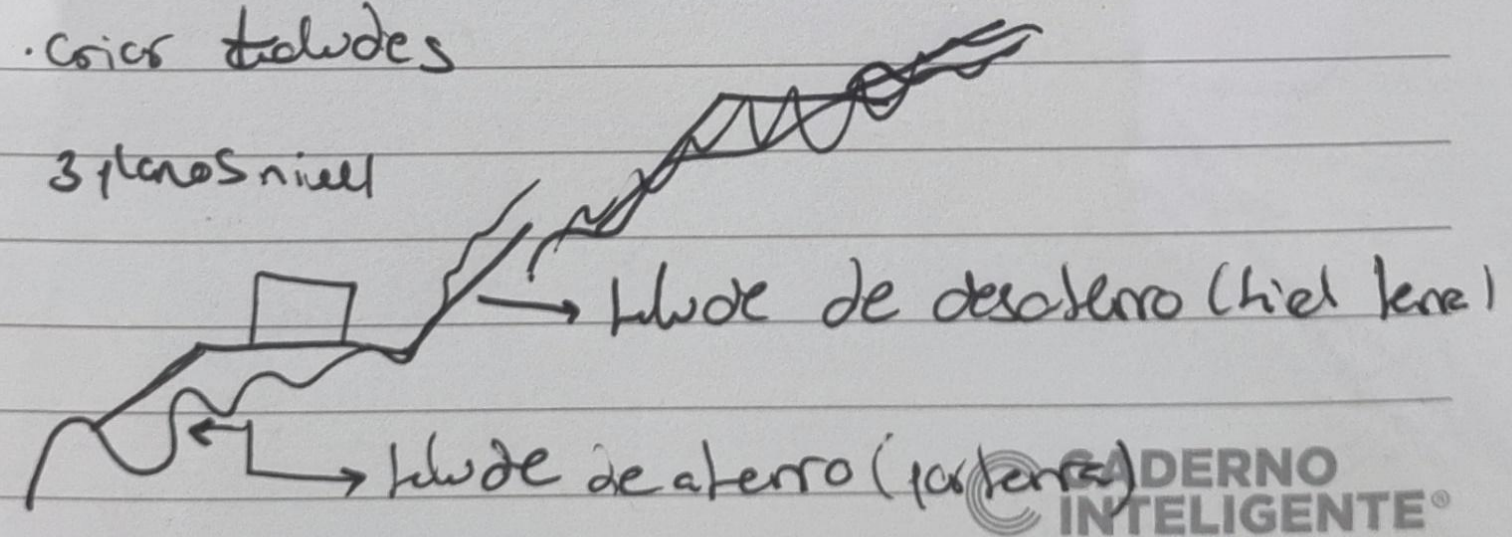 · Criar taludes
3 planos nivel
talude de desaterro (tirar terra)
talude de aterro (por terra)
CADERNO
INTELIGENTE®